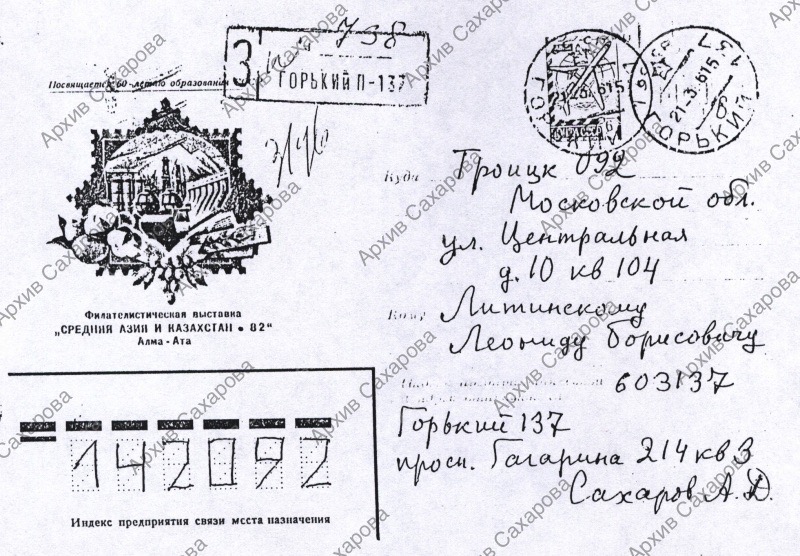 Посвящается 60-летию образования
З
798
ГОРЬКИЙ П-137
Филателистическая выставка
„СРЕДНЯЯ АЗИЯ И КАЗАХСТАН • 82"
Алма-Ата
Куда Троицк 092
Московской обл.
ул. Центральная
д. 10 кв 104
Кому Литинскому
Леониду Борисовичу
603137
Горький 137
просп. Гагарина 214 кв 3
Сахаров А.Д.
142092
Индекс предприятия связи места назначения
ГОРЬКИЙ
21-3. 615
ГОРЬКИЙ 137
Архив Сахарова